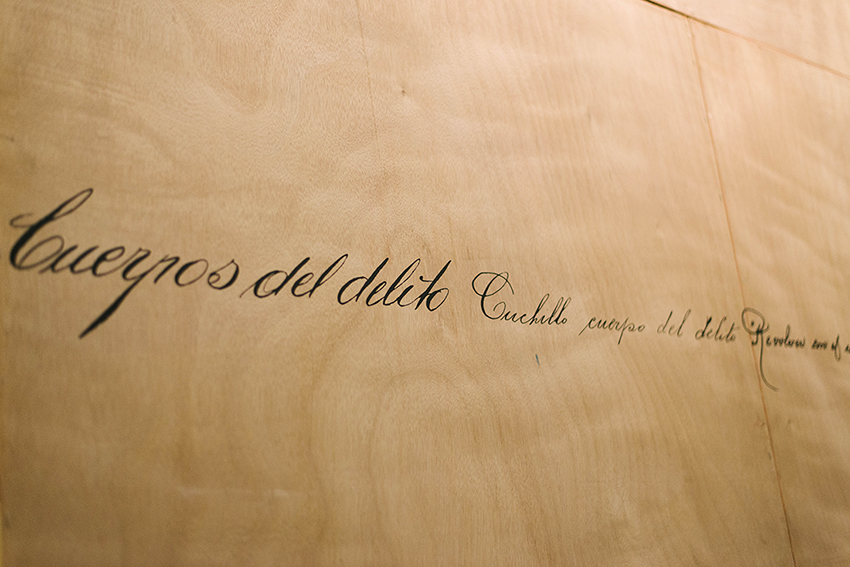 Cuerpos del delito Cuchillo cuerpo del delito Revolver